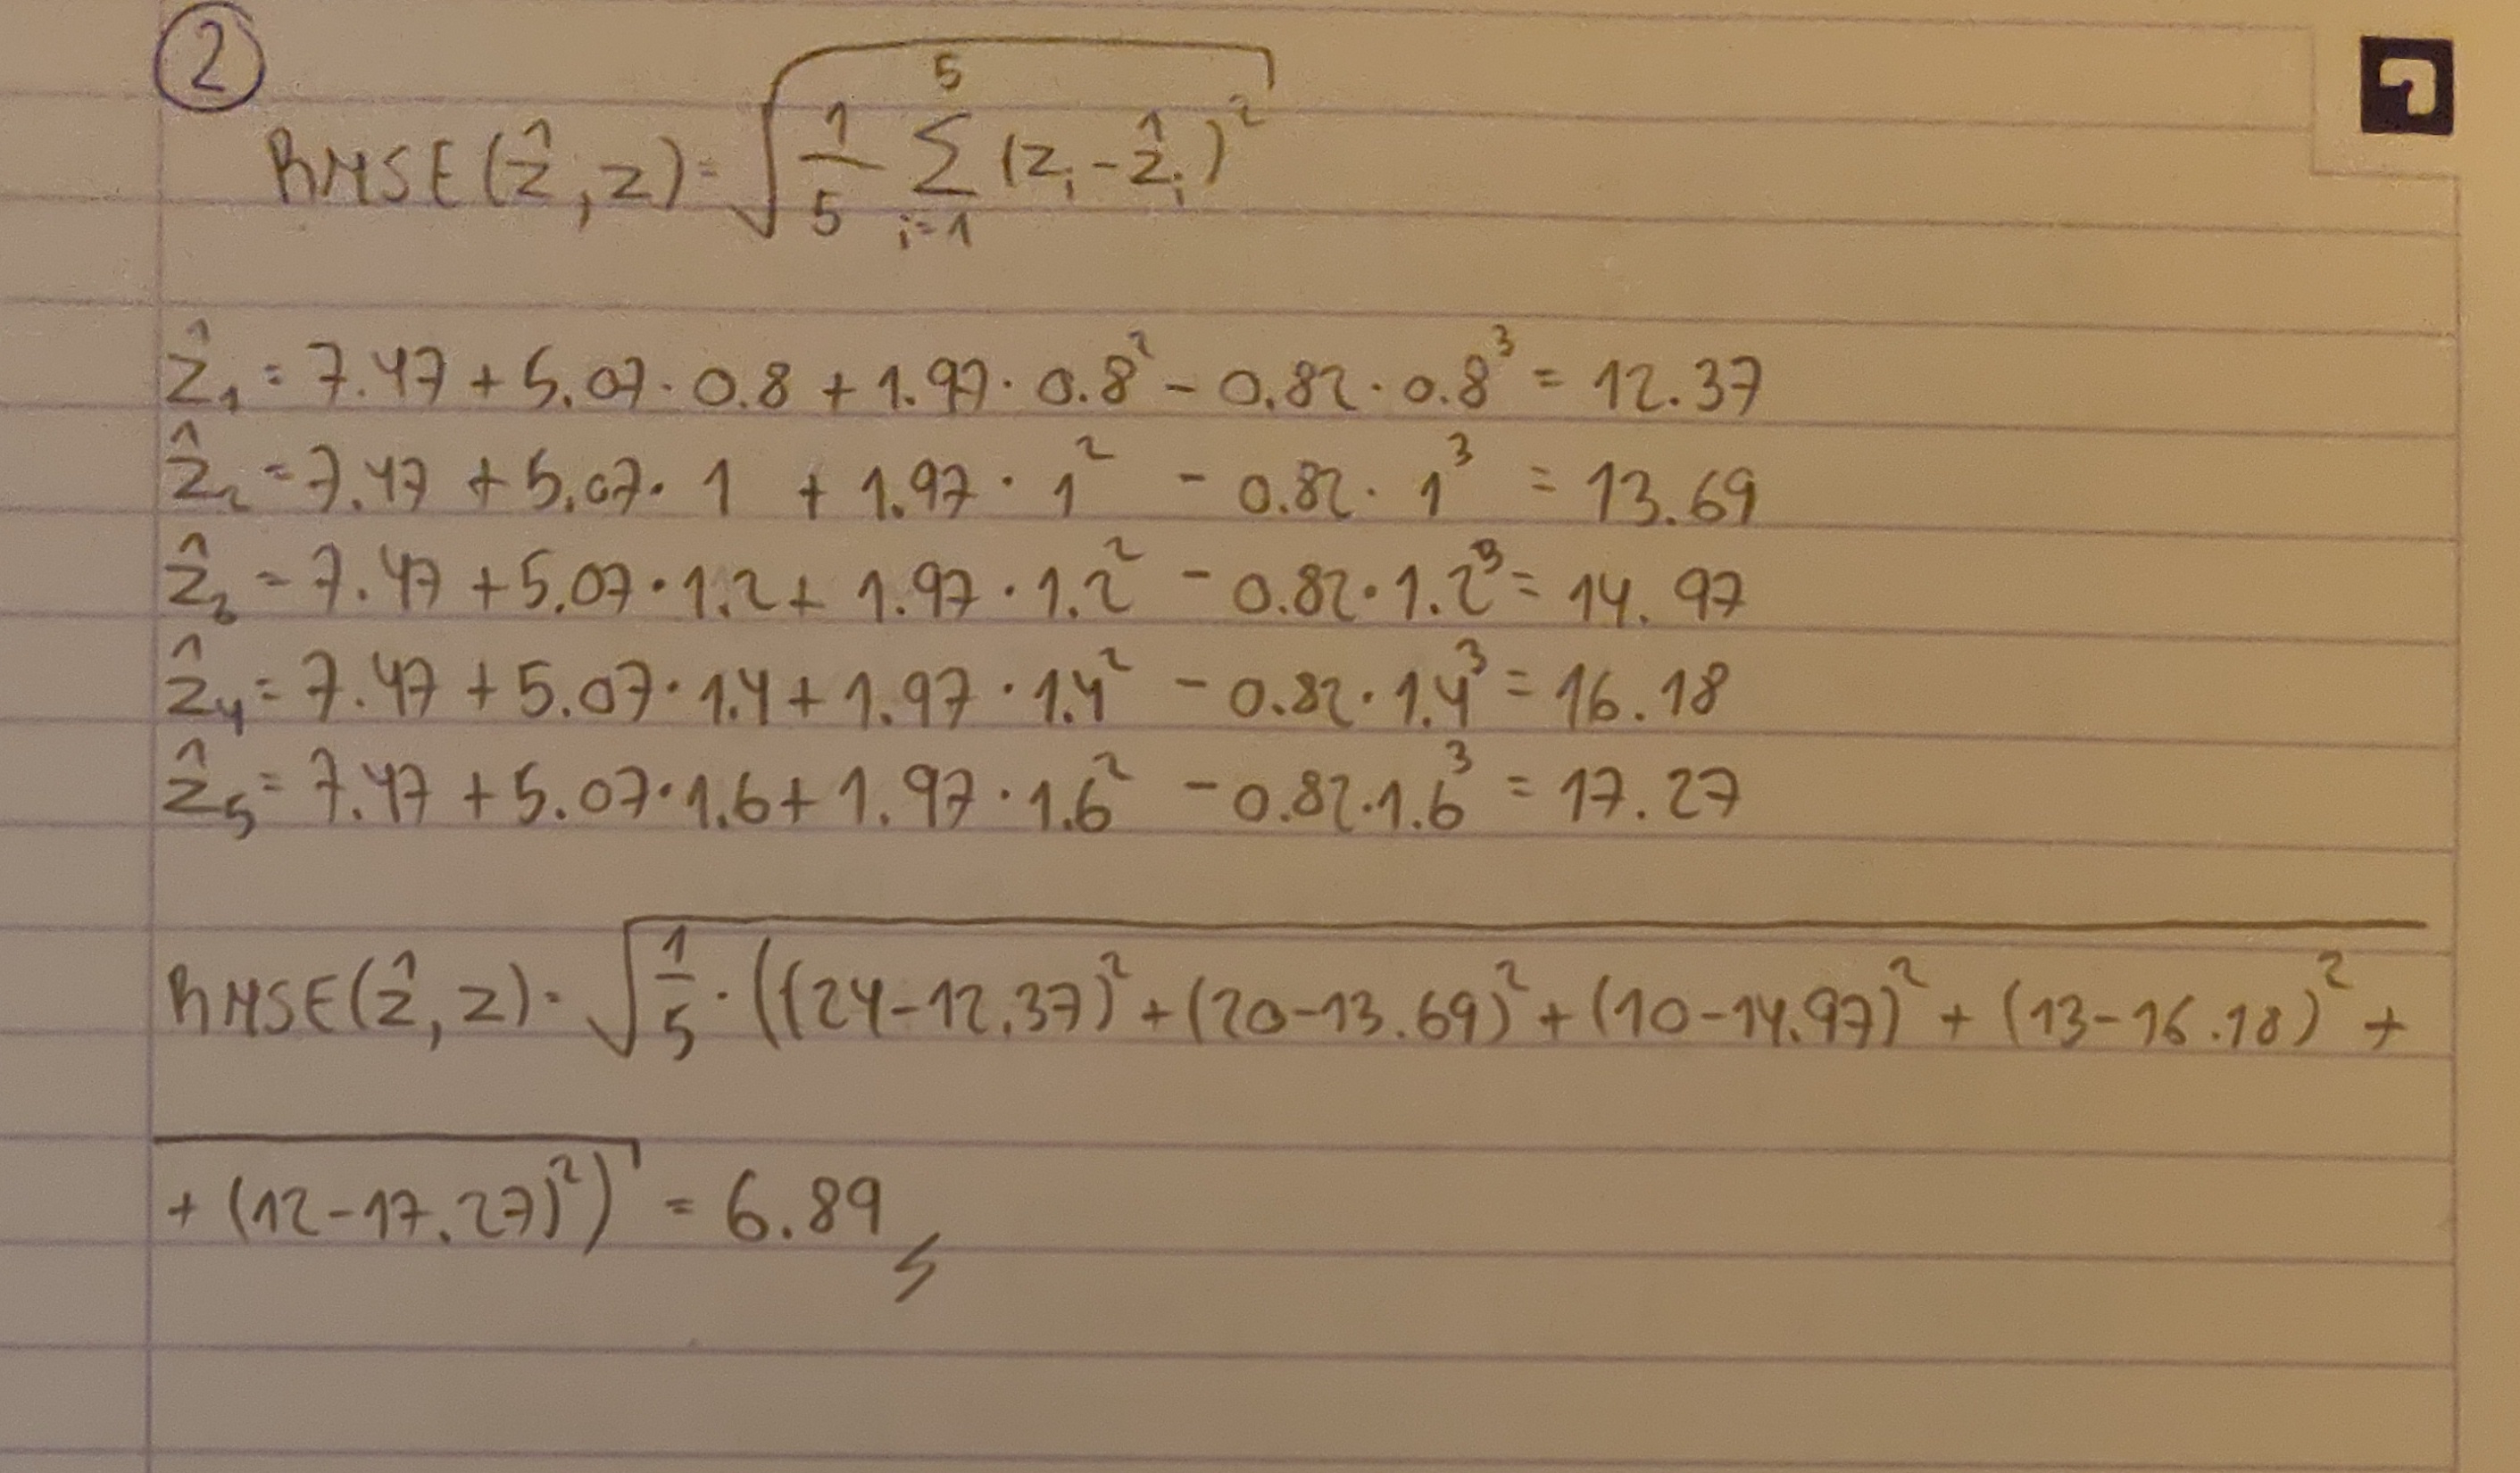 2
RMSE(ẑ, z) = √(1/5 Σ_{i=1}^{5} (z_i - ẑ_i)²)
ẑ₁ = 7.47 + 5.07 · 0.8 + 1.97 · 0.8² - 0.82 · 0.8³ = 12.37
ẑ₂ = 7.47 + 5.07 · 1 + 1.97 · 1² - 0.82 · 1³ = 13.69
ẑ₃ = 7.47 + 5.07 · 1.2 + 1.97 · 1.2² - 0.82 · 1.2³ = 14.97
ẑ₄ = 7.47 + 5.07 · 1.4 + 1.97 · 1.4² - 0.82 · 1.4³ = 16.18
ẑ₅ = 7.47 + 5.07 · 1.6 + 1.97 · 1.6² - 0.82 · 1.6³ = 17.27
RMSE(ẑ, z) = √(1/5 · ((24-12.37)² + (20-13.69)² + (10-14.97)² + (13-16.18)² +
+ (12-17.27)²)) = 6.89